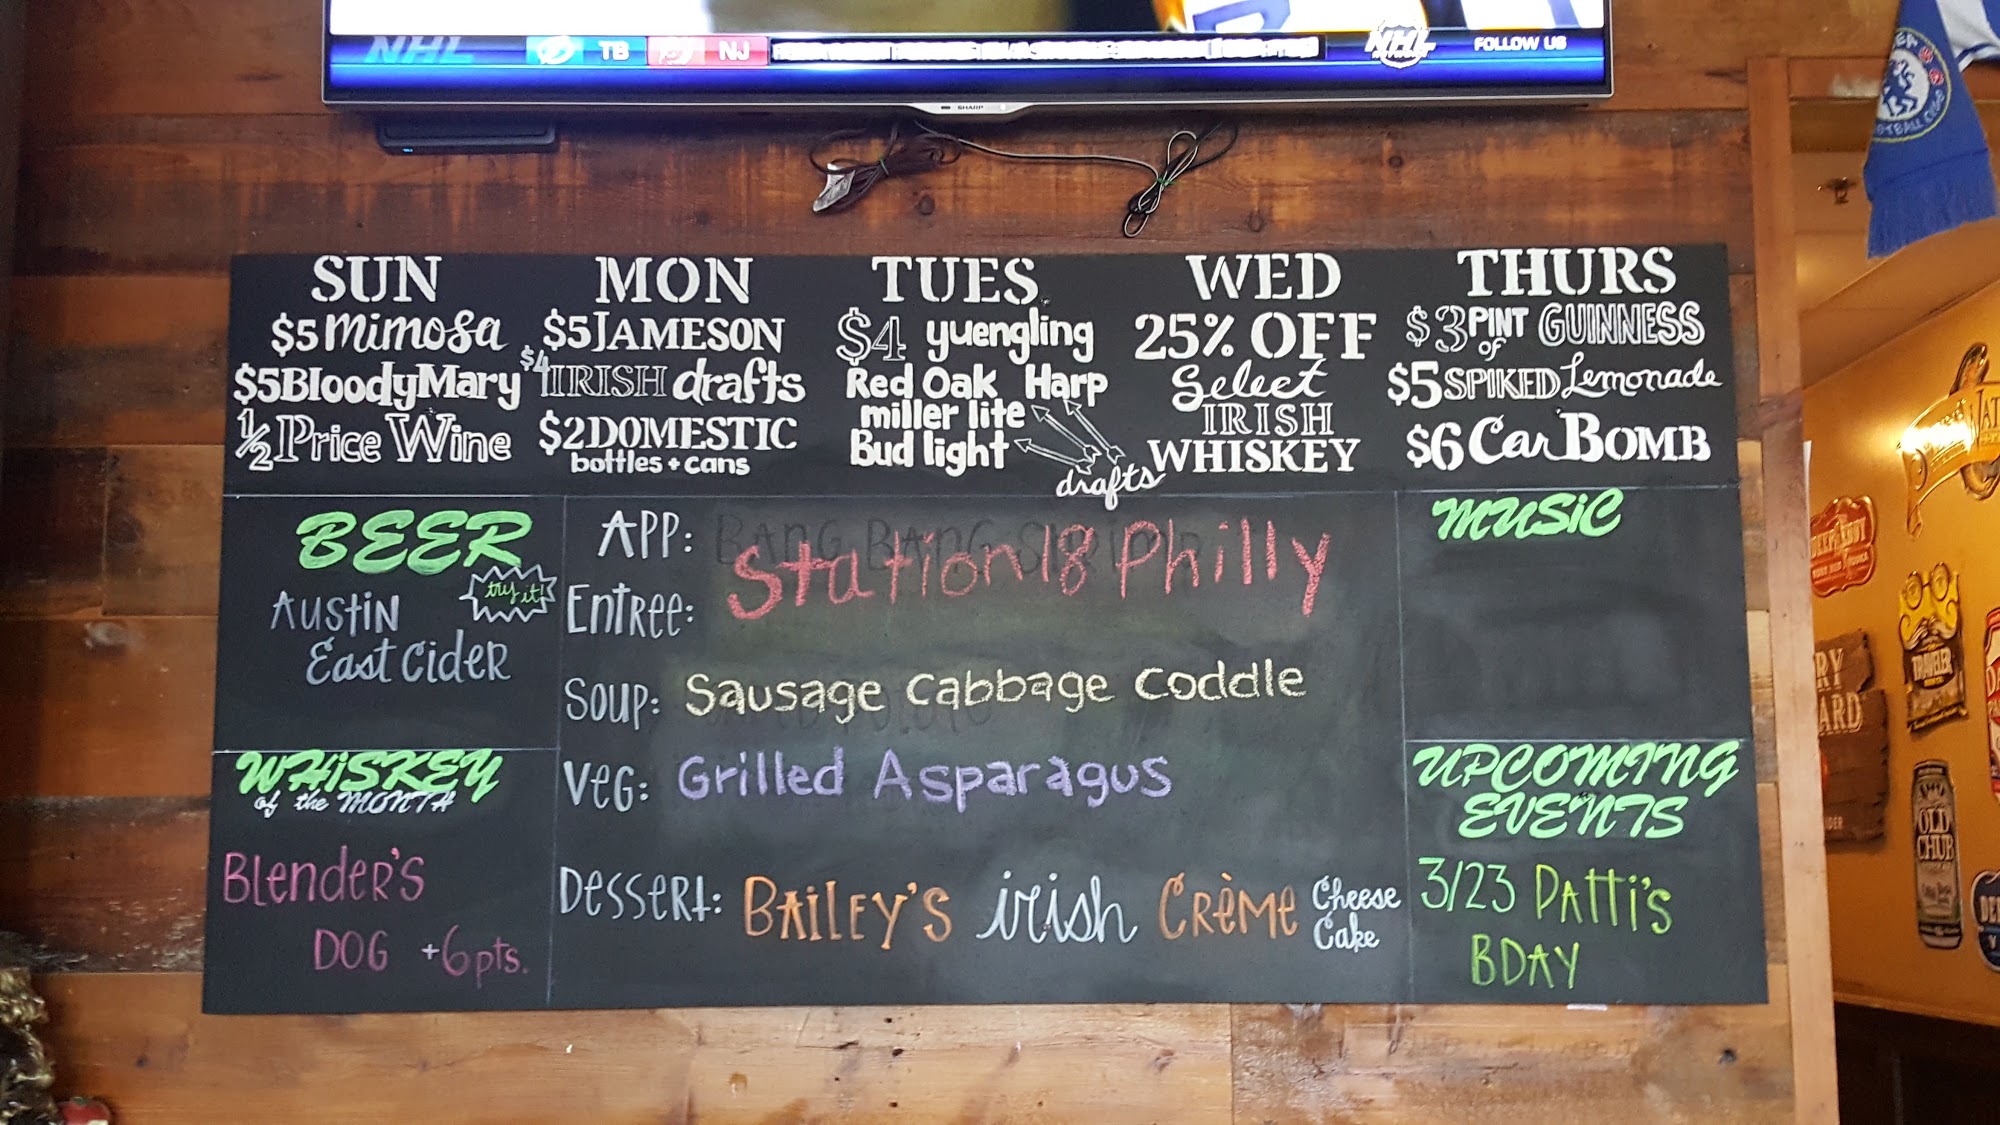 NHL TB NJ NHL FOLLOW US
SHARP
SUN
$5 mimosa
$5 Bloody Mary
1/2 Price Wine
MON
$5 JAMESON
$4 IRISH drafts
$2 DOMESTIC
bottles + cans
TUES
$4 yuengling
Red Oak Harp
miller lite
Bud light
drafts
WED
25% OFF
Select
IRISH
WHISKEY
THURS
$3 PINT of GUINNESS
$5 SPIKED Lemonade
$6 Car BOMB
BEER
try it!
AUSTIN
East CiDER
WHiSKEY
of the MONTH
Blender's
DOG +6pts.
APP: BANG BANG Shrimp
Station 18 Philly
ENTREE:
SOUP: Sausage Cabbage Coddle
VEG: Grilled Asparagus
DESSERt: BAiLEY'S irish CRÈME Cheese
Cake
MUSiC
UPCOMING
EVENTS
3/23 PAtti's
BDAY
FOOTBALL CLUB
DEEP EDDY
TRAVELER
RY
ARD
OLD
CHUB